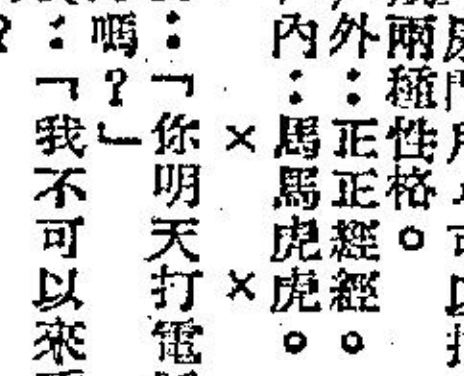 兩種性格。
外：正正經經。
內：馬馬虎虎。
×　×
：「你明天打電
嗎？」
：「我不可以來
？